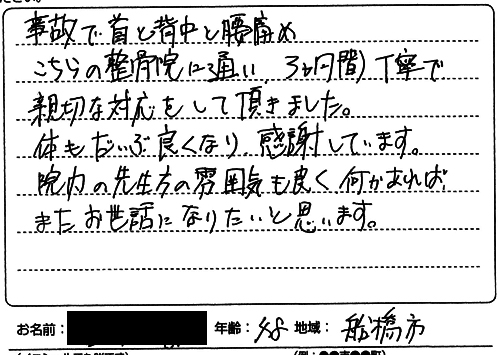 事故で首と背中と腰痛め
こちらの整骨院に通い、3ヶ月間丁寧で
親切な対応をして頂きました。
体もだいぶ良くなり、感謝しています。
院内の先生方の雰囲気も良く何かあれば、
またお世話になりたいと思います。
お名前: 年齢:48 地域: 船橋市